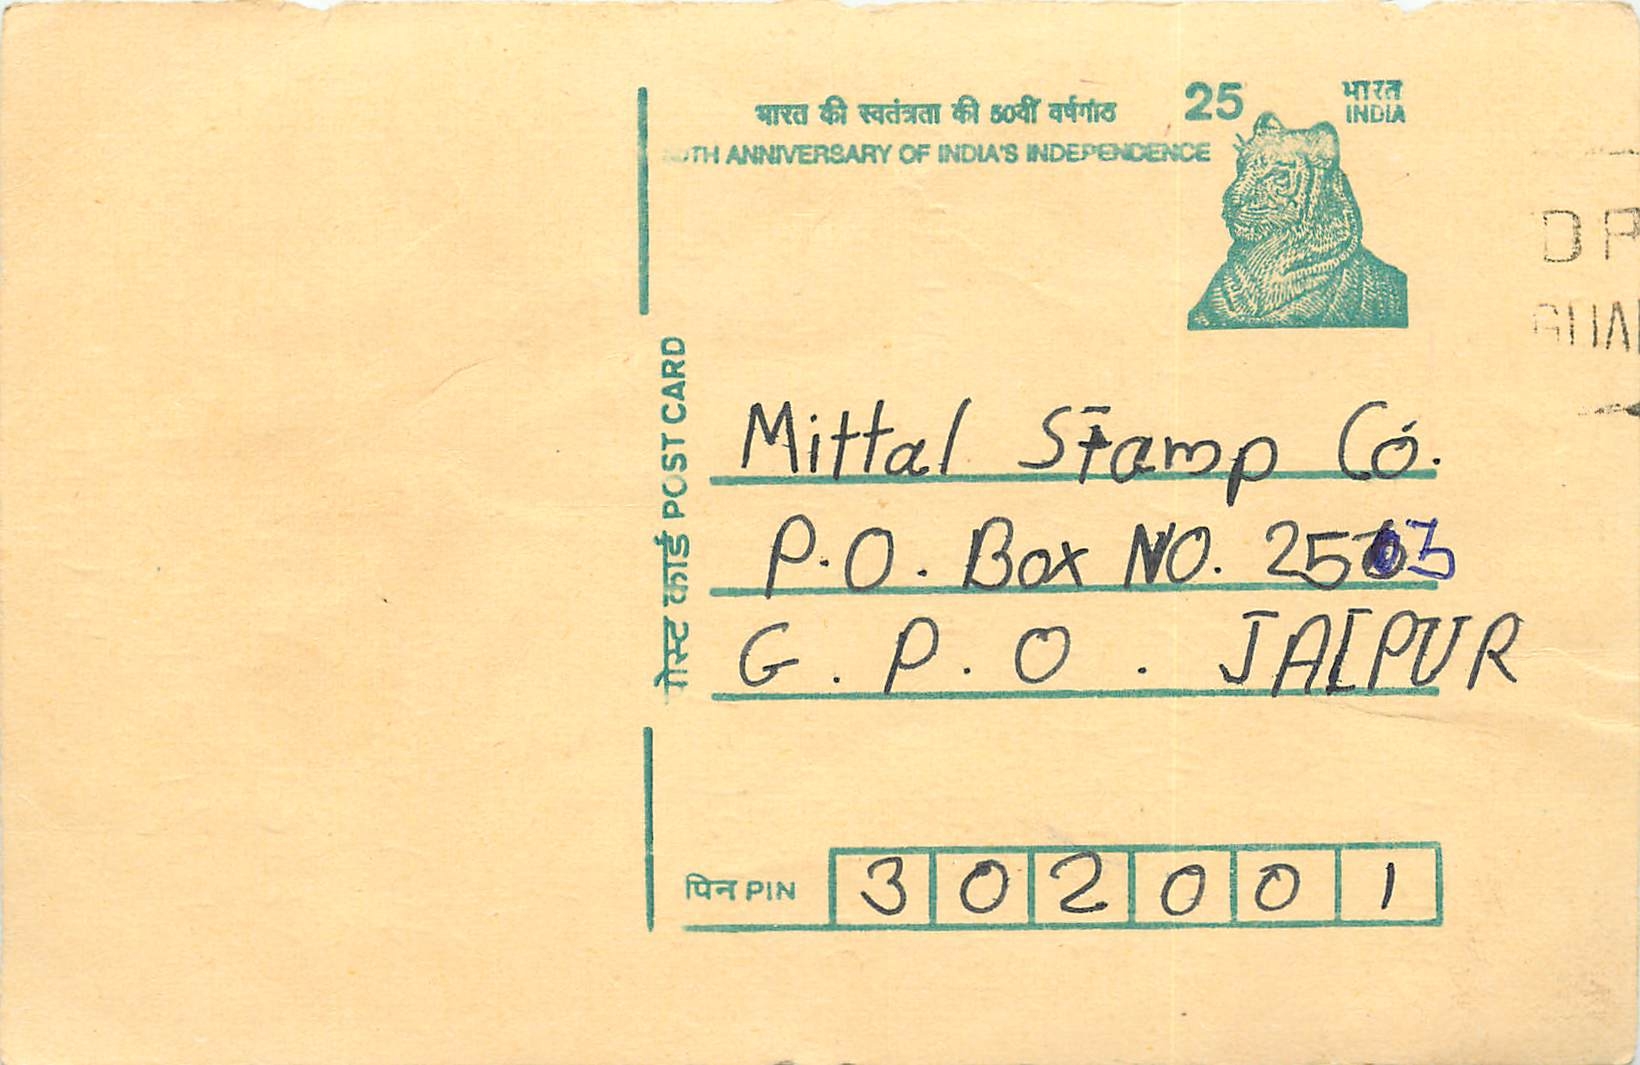 भारत की स्वतंत्रता की 50वीं वर्षगांठ
TH ANNIVERSARY OF INDIA'S INDEPENDENCE
25
भारत
INDIA
पोस्ट कार्ड POST CARD
Mittal Stamp Co.
P.O. Box NO. 2503
G. P. O. JAIPUR
पिन PIN 302001